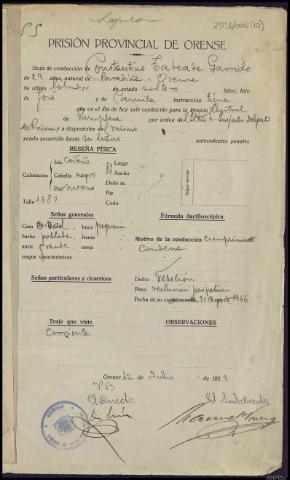 25156/006 (10)
PRISIÓN PROVINCIAL DE ORENSE.
Hoja de conducción de Constantino Taboada Garrido
de 29 años, natural de Orense
de oficio labrador de estado soltero hijos, hijo
de José y de Camila instrucción tiene
que en el día de hoy sale conducido para la Prisión Central
de Pamplona por orden del Inspector Delegado
de Prisiones y a disposición del mismo
siendo socorrido hasta su destino antecedentes penales
RESEÑA FÍSICA
Coloración
Iris Castaño
Cabello negro
Piel moreno
Talla 1,680
Largo
Ancho
Dedo
Pie
Pulgar derecho
Señas generales
Cara oval boca pequeña
barba poblada frente
nariz grande oreja
rasgos característicos
Fórmula dactiloscópica
Motivo de la conducción cumplimiento
condena
Señas particulares y cicatrices
Delito rebelión
Pena reclusión perpetua
Fecha de su Agosto 1966
Traje que viste
Corriente
OBSERVACIONES
Orense 12 de Julio de 193
El Director
El Subdirector
AHPOu